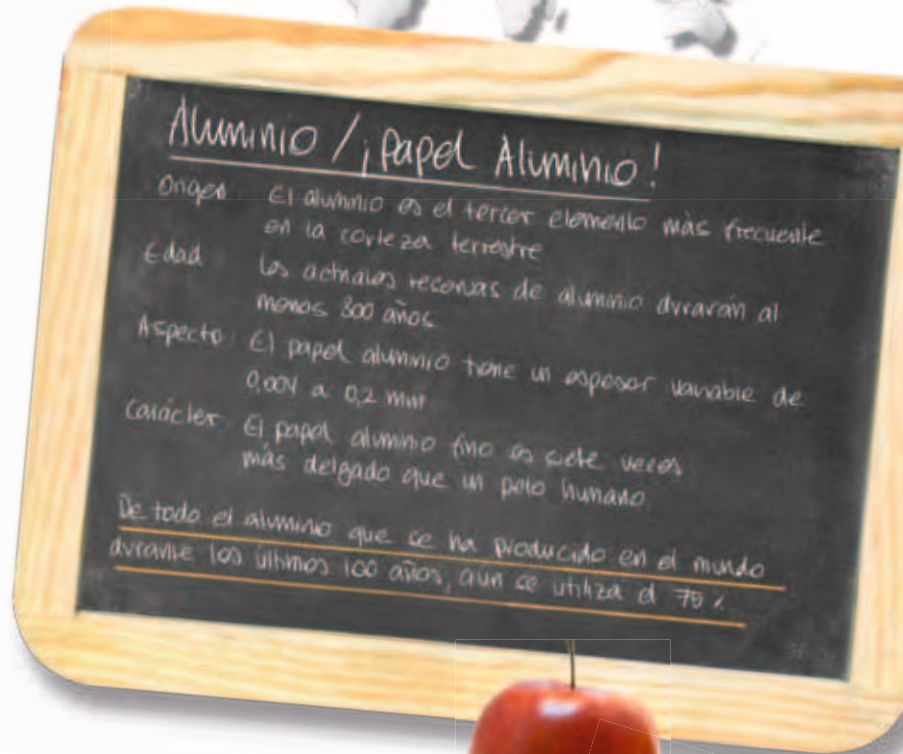 Aluminio / ¡Papel Aluminio!
Origen El aluminio es el tercer elemento más frecuente
en la corteza terrestre
Edad Las actuales reservas de aluminio durarán al
menos 300 años
Aspecto El papel aluminio tiene un espesor variable de
0,004 a 0,2 mm
Carácter El papel aluminio fino es siete veces
más delgado que un pelo humano
De todo el aluminio que se ha producido en el mundo
durante los últimos 100 años, aún se utiliza el 75 %